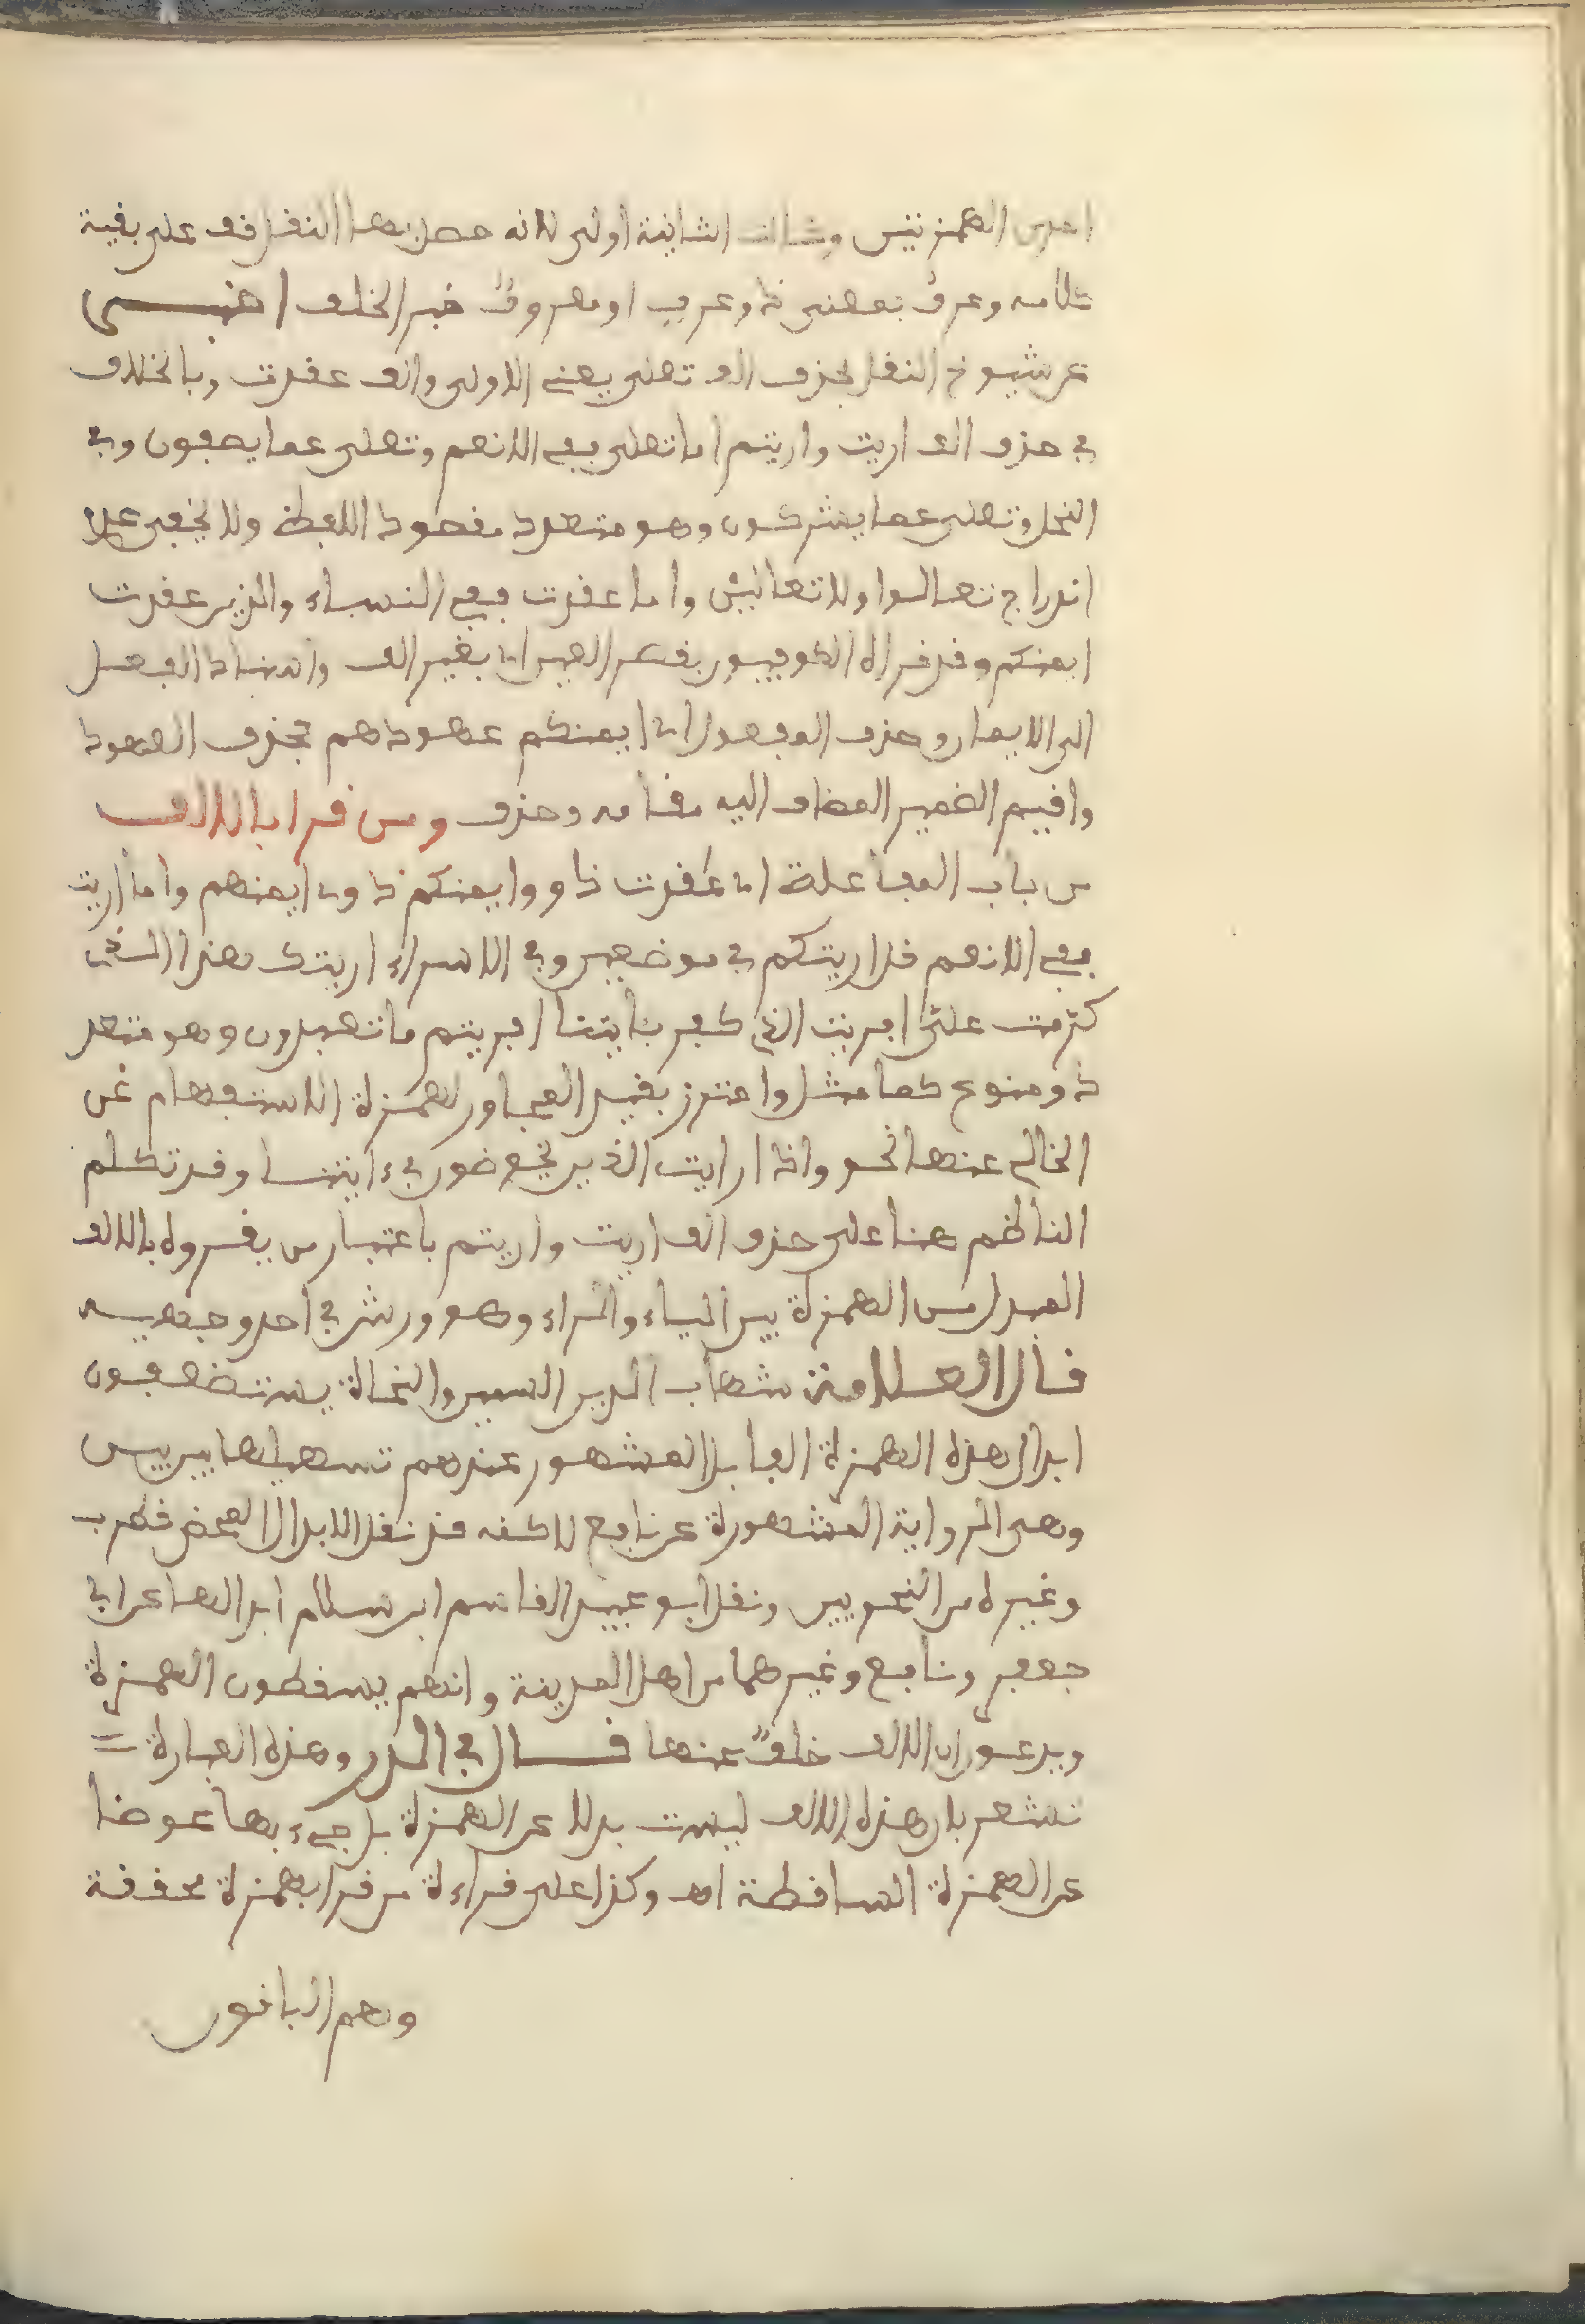 احدى الهمزتين وحذف الثانية اولى لانه حصل بها الثقل قف على بقية
كلامه وعرف بمعنى ذو عرف او معروف خبر الخلف اخبى
عن شيوخ النقل بحذف الف تعلى يعنى الاولى والف عقدت وبالخلاف
في حذف الف اريت واريتم اما تعلى ففي الانعم وتعلى عما يصفون وفي
النحل وتعلى عما يشركون وهو متعدد مقصود اللفظة ولا يخفى عدم
اندراج تعالوا ولا تعالين واما عقدت ففي النساء والذين عقدت
ايمنكم وقد قراه الكوفيون بقصر العين اي بغير الف واسناد الفعل
الى الايمان وحذف المفعول اي ايمنكم عهودهم فحذف العهود
واقيم الضمير المضاف اليه مقامه وحذف ومن قرا بالالف
من باب المفاعلة اي عقدت ذوو ايمنكم ذوي ايمنهم واما اريت
ففي الانعم قل اريتكم في موضعين وفي الاسراء اريتك هذا الذي
كرمت علي افريت الذي كفر بئايتنا افريتم ما تعبدون وهو متعد
د ومنوع كما مثل واحترز بقيد المجاور لهمزة الاستفهام عن
الخالي عنها نحو واذا رايت الذين يخوضون في ءايتنا وقد تكلم
الناظم هنا على حذف الف اريت واريتم باعتبار من يقروه بالالف
المبدل من الهمزة بين الياء والراء وهو ورش في احد وجهيه
قال العلامة شهاب الدين السمين والنحاة يستضعفون
ابدال هذه الهمزة الفا بل المشهور عندهم تسهيلها بين بين
وهي الرواية المشهورة عن نافع لاكنه قد نقل الابدال المحض قطرب
وغيره من النحويين ونقل ابو عبيد القاسم ابن سلام ابدالها عن ابي
جعفر ونافع وغيرهما من اهل المدينة وانهم يسقطون الهمزة
ويدعون ان الالف خلف عنها قال في الدر وهذه العبارة =
تشعر بان هذه الالف ليست بدلا عن الهمزة بل جيء بها عوضا
عن الهمزة الساقطة اهـ وكذا على قراءة من قرا بهمزة محققة
وهم الباقون